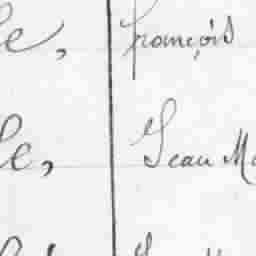 le, françois
le, Jean Ma